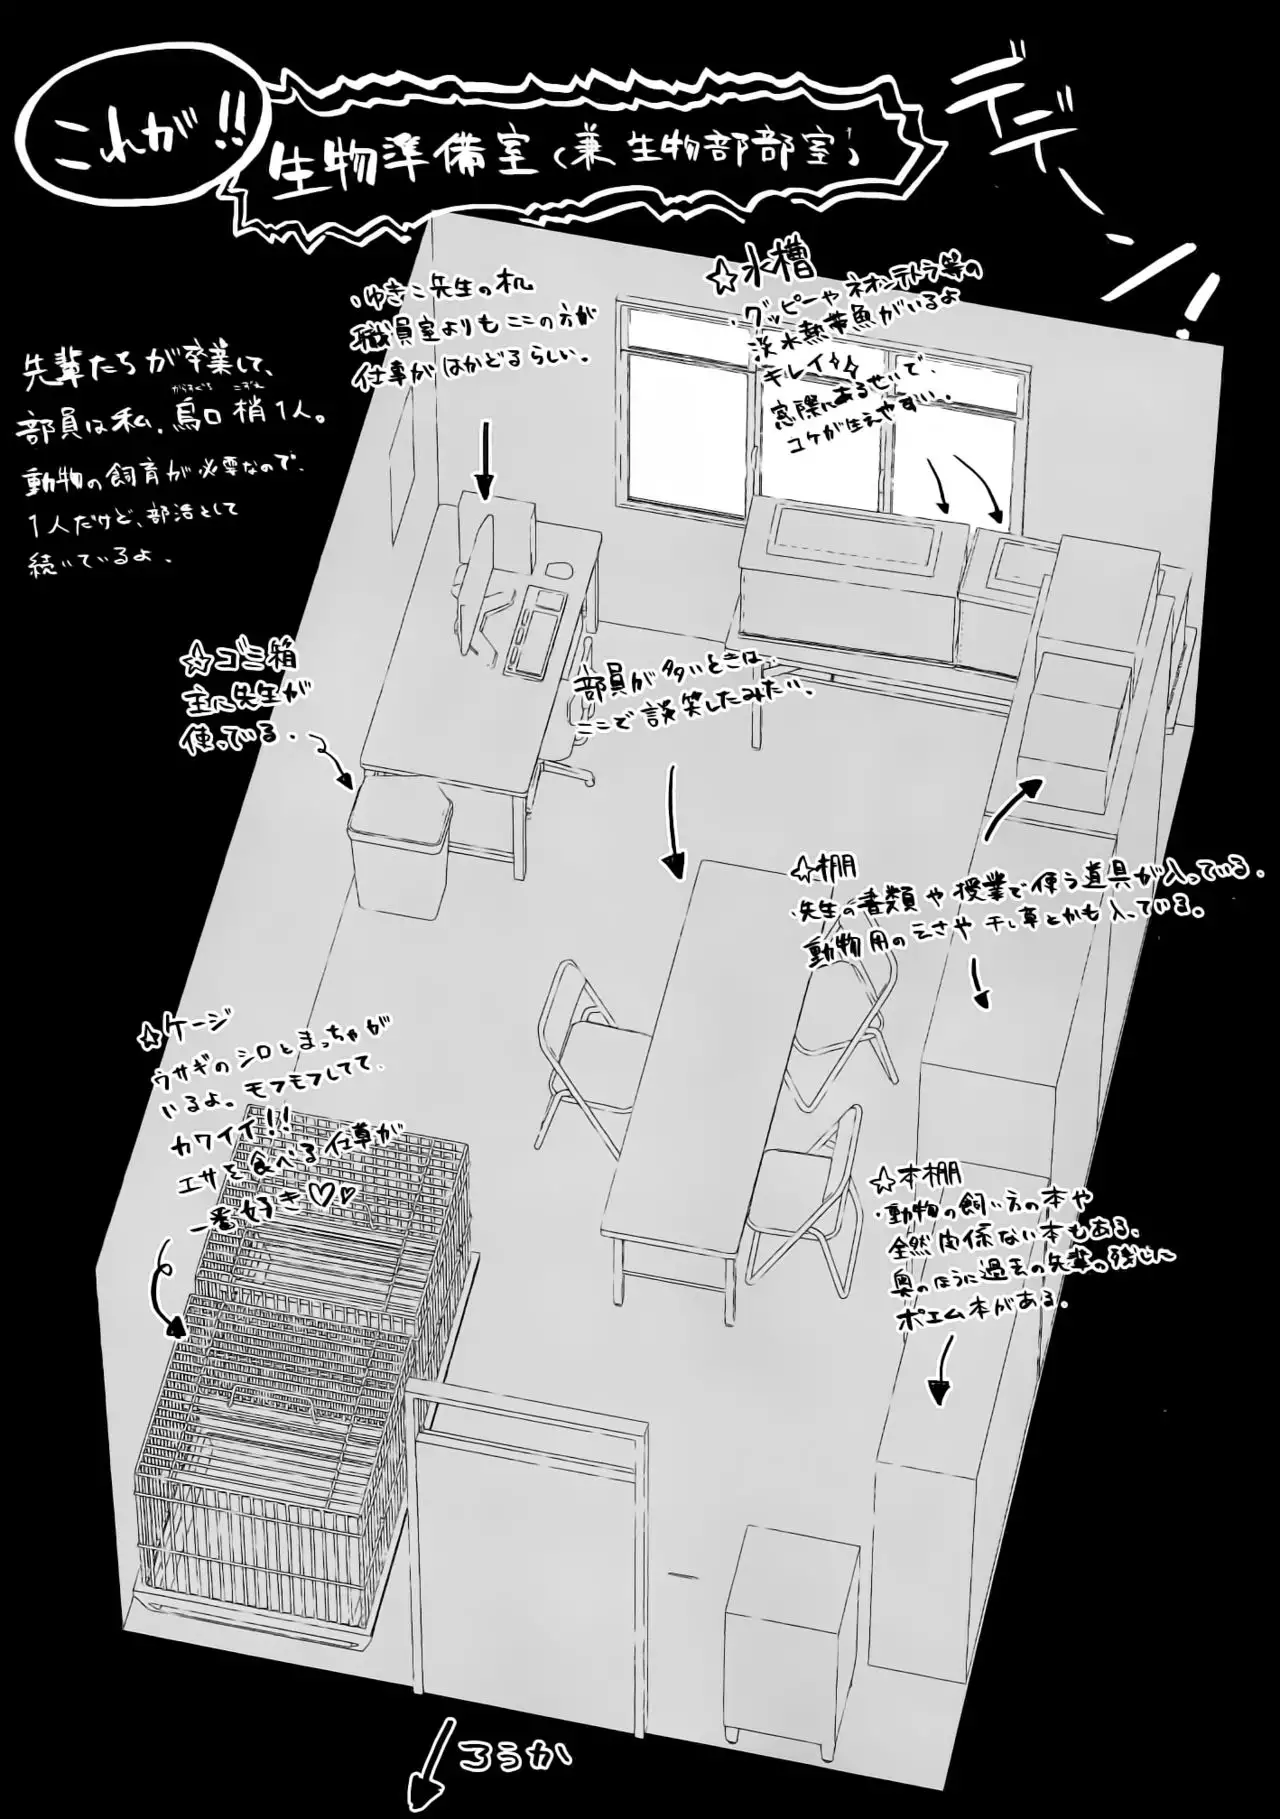 これが!!
生物準備室(兼 生物部部室)
デデーン!
先輩たちが卒業して、
部員は私、烏口 梢 1人。
からすぐち こずえ
動物の飼育が必要なので、
1人だけど、部活として
続いているよ。
・ゆきこ先生の机
職員室よりもここの方が
仕事がはかどるらしい。
☆水槽
・グッピーやネオンテトラ等の
淡水熱帯魚がいるよ
キレイ
窓際にあるせいで、
コケが生えやすい。
☆ゴミ箱
主に先生が
使っている。
部員が多いときは、
ここで談笑したみたい。
☆棚
・先生の書類や授業で使う道具が入っている。
動物用のえさや干し草とかも入っている。
☆ケージ
ウサギのシロとまっちゃが
いるよ。モフモフしてて、
カワイイ!!
エサを食べる仕草が
一番好き♡♡
☆本棚
・動物の飼い方の本や
全然関係ない本もある。
奥のほうに過去の先輩の残した
ポエム本がある。
ろうか